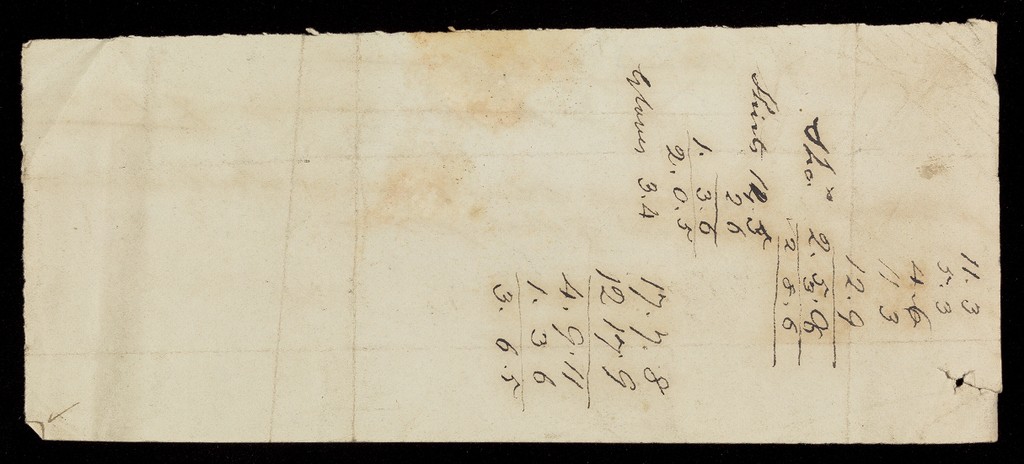 11. 3
5. 3
4. 6
11 3
12. 9
2. 5.
2 8. 6
Shirts 12. 5
2 6
1. 3. 6
2. 0. 5
Gloves 3. 4
17. 7. 8
12 17. 9
4. 9. 11
1. 3 6
3. 6. 5